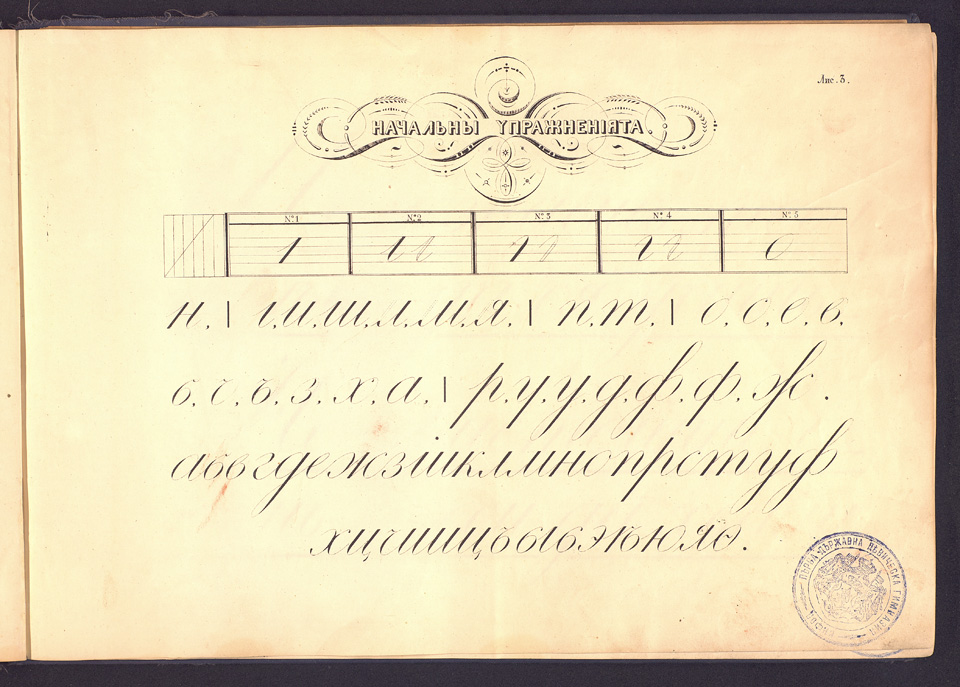 Лис. 3.
НАЧАЛЬНЫ УПРАЖНЕНІЯТА.
№ 1 № 2 № 3 № 4 № 5
н. | г.и.ш.л.м.я. | п.т. | о.с.е.в.
ь.ч.ъ.з.х.а. | р.у.у.д.ф.ф.ж.
абвгдежзіиклмнопрстуф
хцчшщъыьэѣюяѳ.
ДЪРЖАВНА ДѢВИЧЕСКА ГИМНАЗИЯ